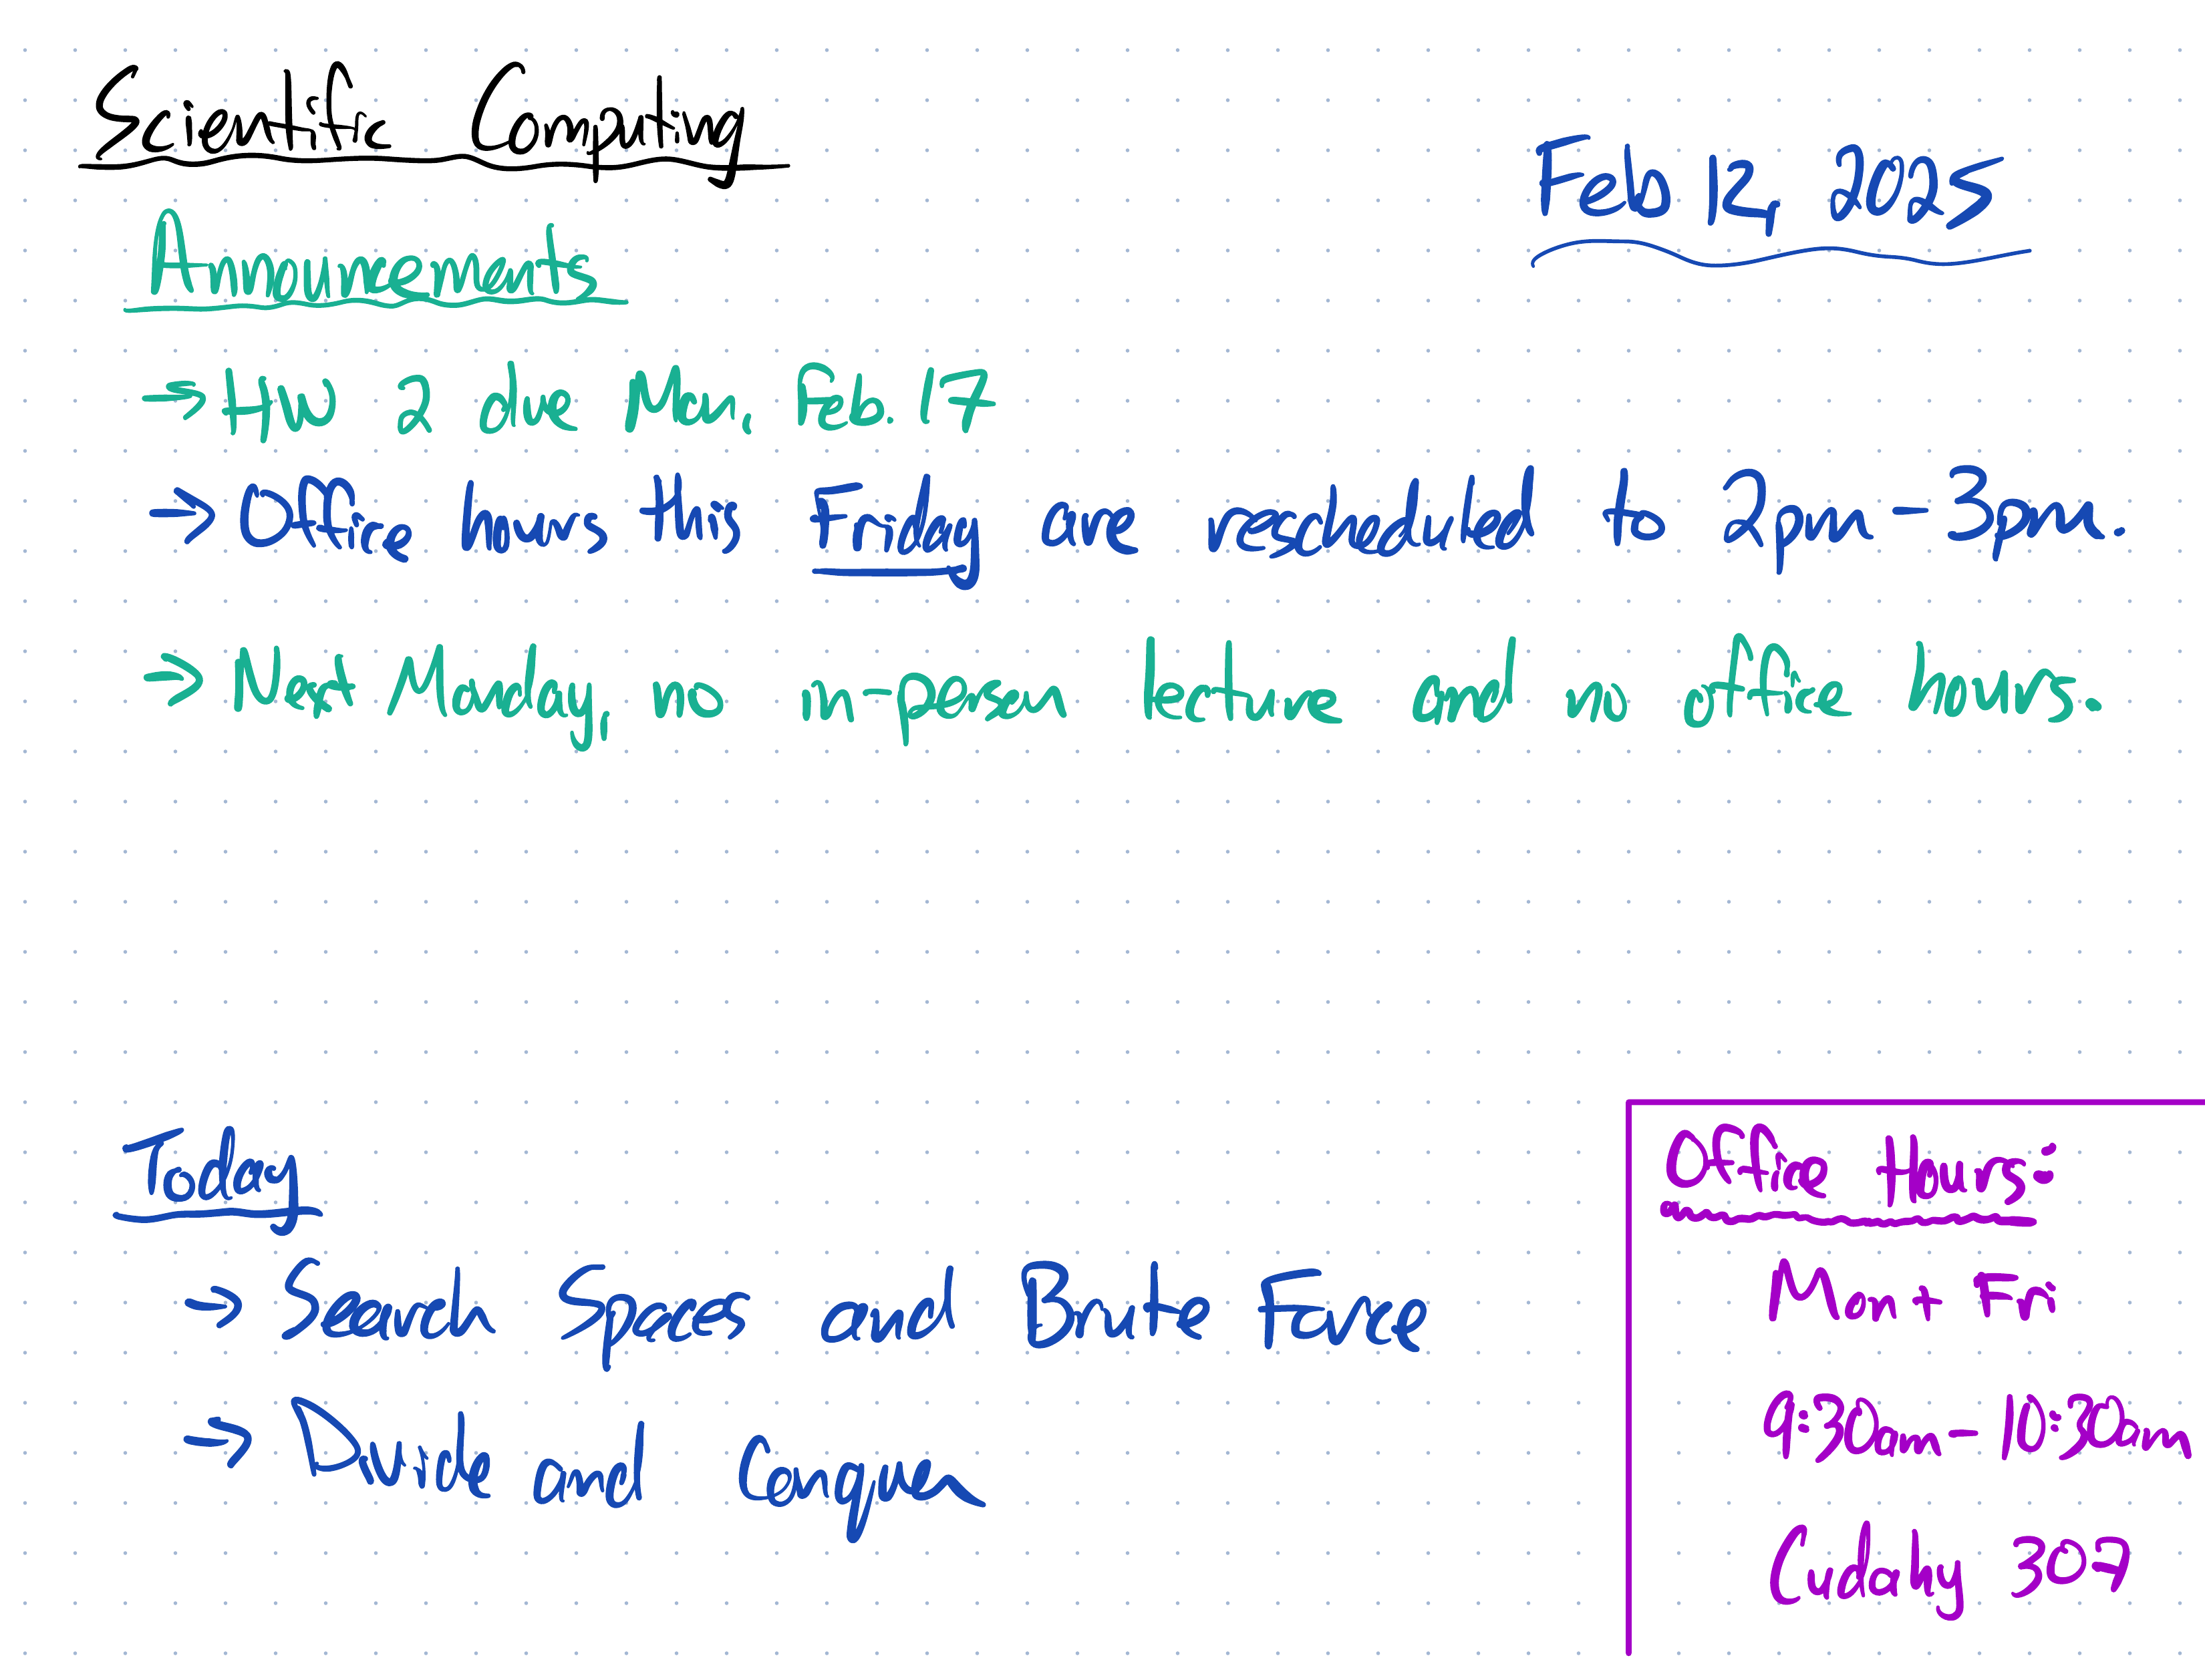 Scientific Computing
Feb 12, 2025
Announcements
→ HW 2 due Mon. Feb. 17
→ Office hours this Friday are rescheduled to 2pm - 3pm.
→ Next Monday, no in-person lecture and no office hours.
Today
→ Search Spaces and Brute Force
→ Divide and Conquer
Office Hours:
Mon + Fri
9:30am - 10:30am
Cudahy 307